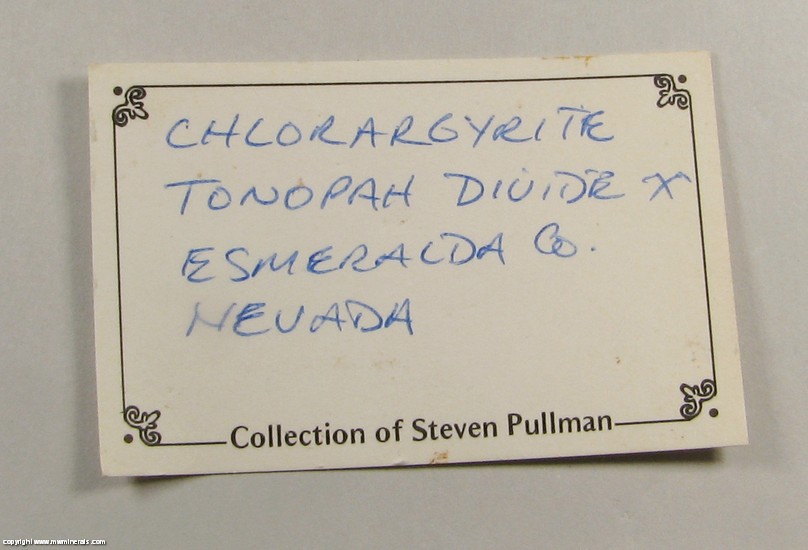 CHLORARGYRITE
TONOPAH DIVIDE X
ESMERALDA Co.
NEVADA
Collection of Steven Pullman
copyright www.mwminerals.com